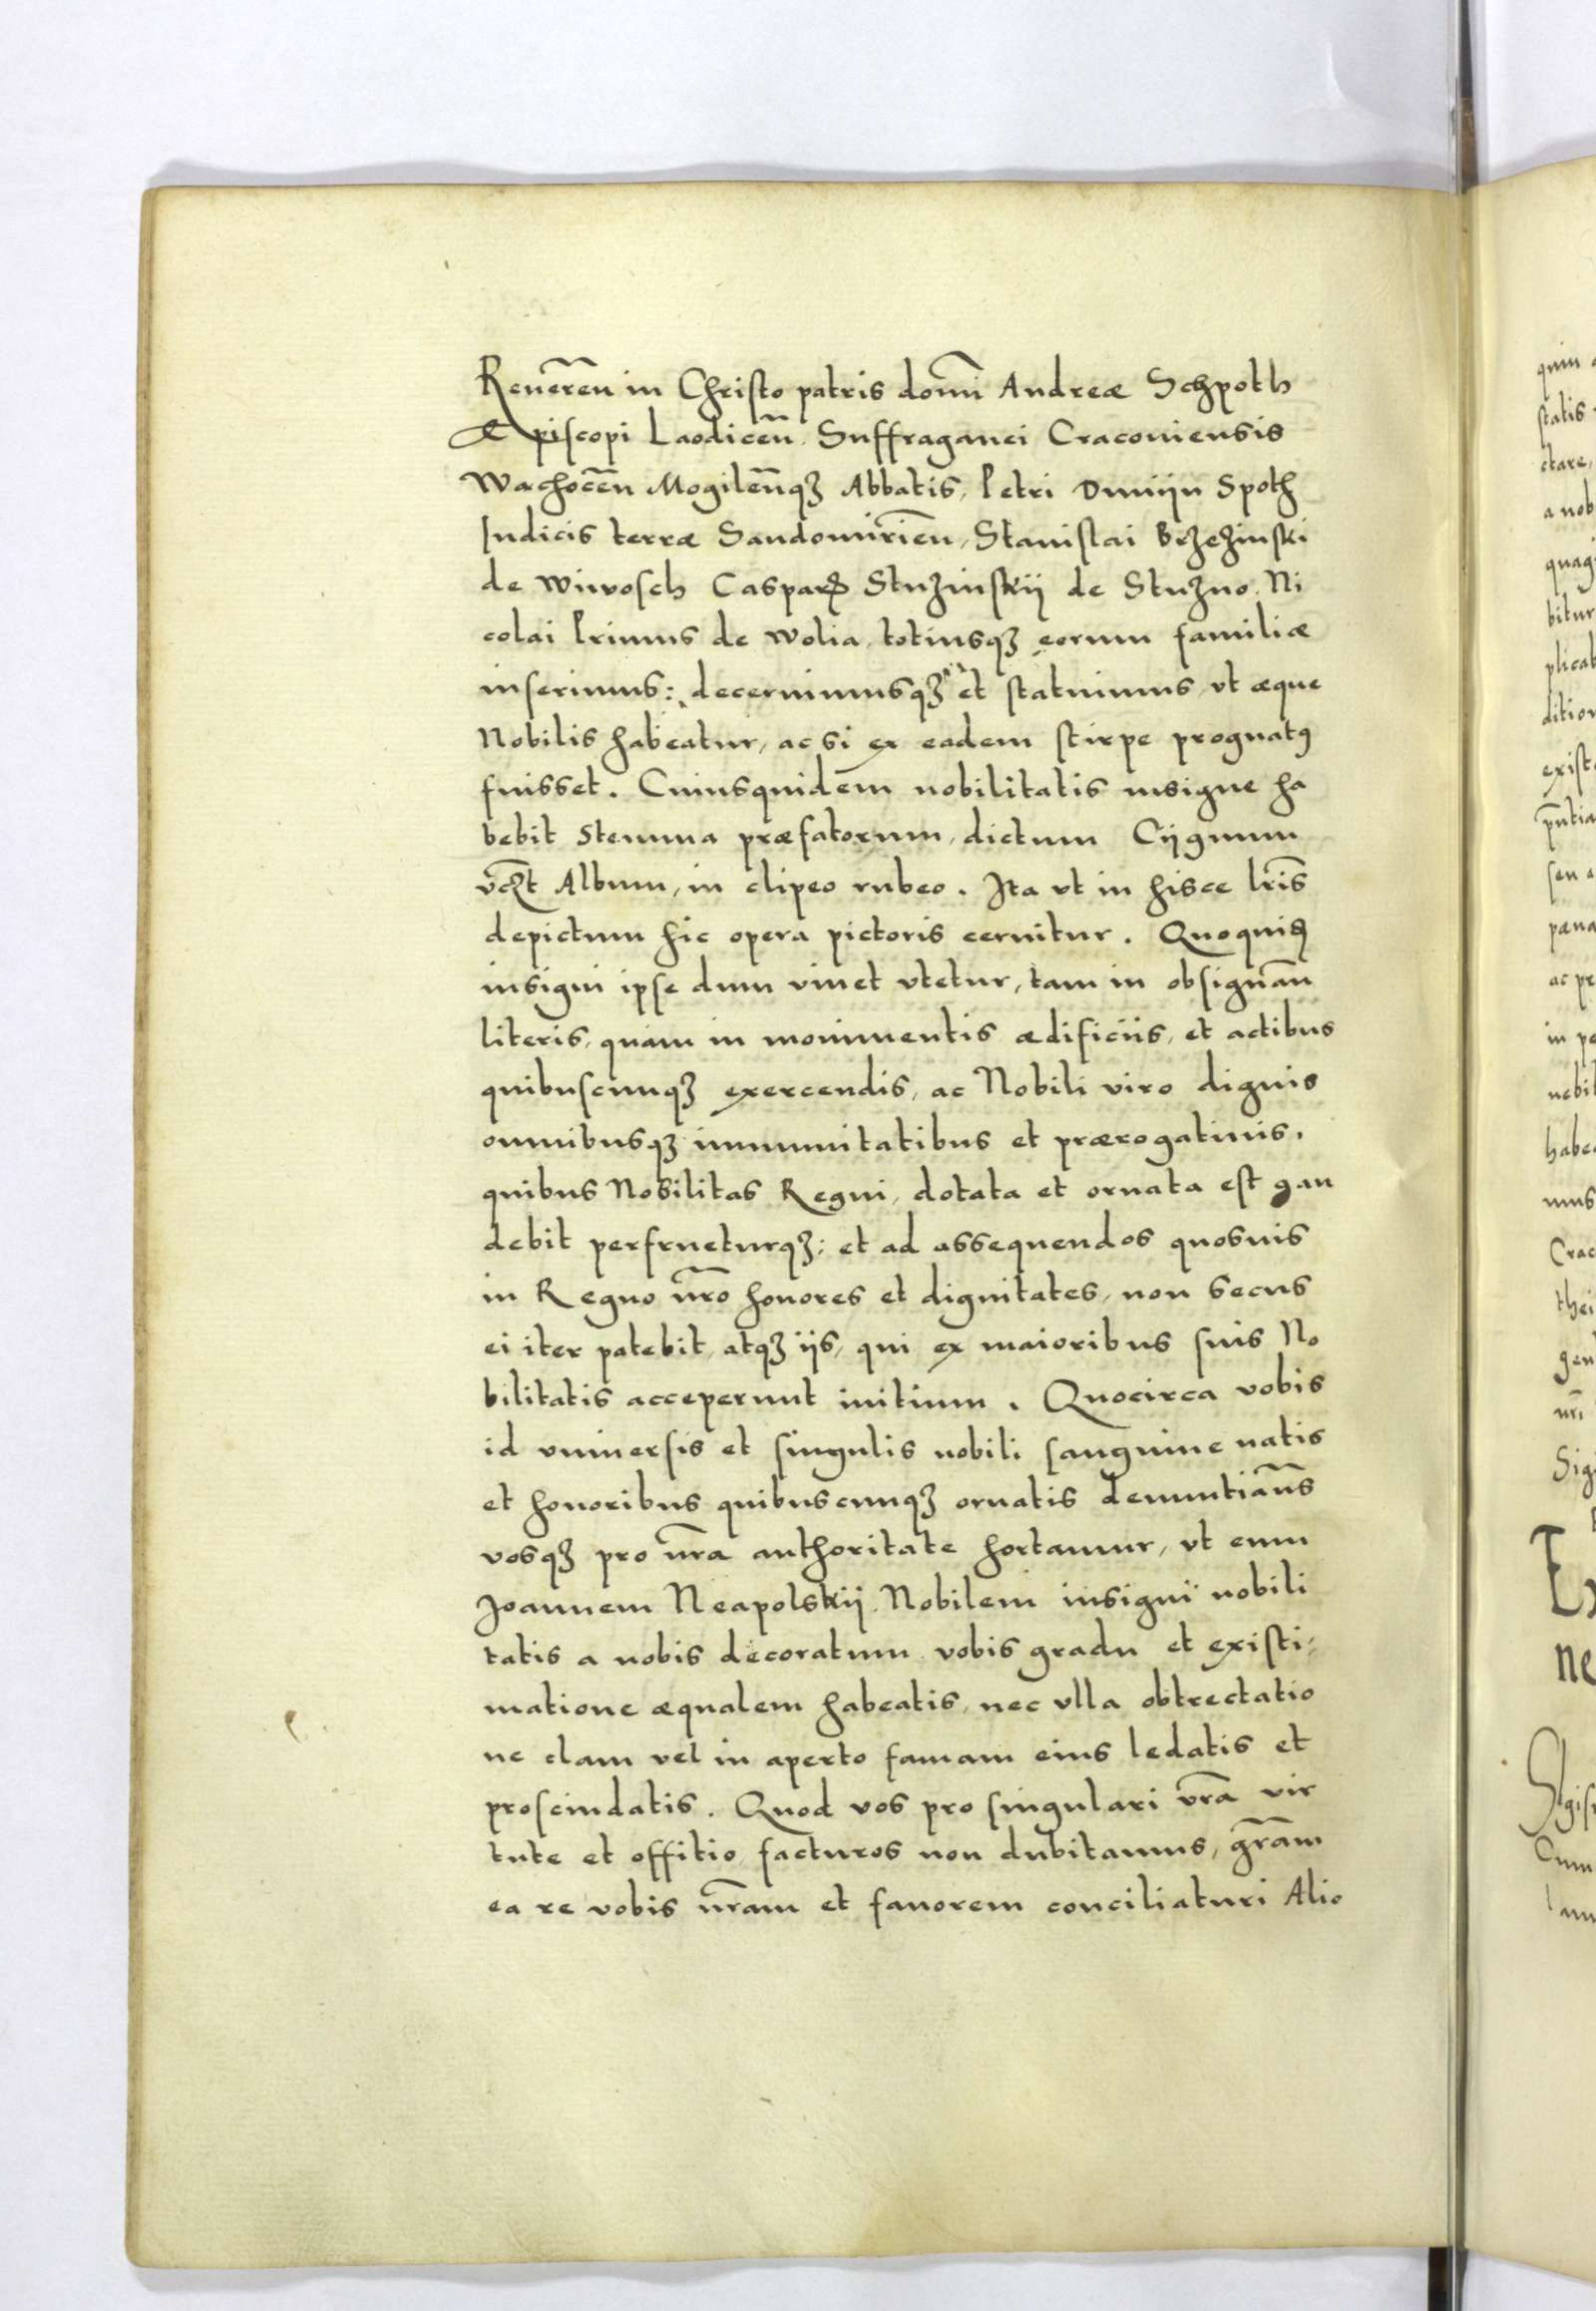 Reuere͂n in Christo patris dom͂i Andreæ Schpoth
Episcopi Laodicen͂. Suffraganei Cracouiensis
Wachoce͂n Mogilen͂qꝫ Abbatis, Petri Dunijn Spoth
Iudicis terræ Sandomirie͂n, Stanislai Brzezinski
de Wirosch Caspar Stuzinskij de Stuzno. Ni
colai Primus de Wolia, totiusqꝫ eorum familiæ
inserimus: decernimusqꝫ et statuimus, vt æque
Nobilis habeatur, ac si ex eadem stirpe prognatꝰ
fuisset. Cuiusquidem nobilitatis insigne ha
bebit Stemma præfatorum, dictum Cijgnum
Album, in clipeo rubeo. Ita vt in hisce lr͂is
depictum hic opera pictoris cernitur. Quoquid
insigni ipse dum viuet vtetur, tam in obsigna͂n
literis, quam in monimentis ædificiis, et actibus
quibuscunqꝫ exercendis, ac Nobili viro dignis
omnibusqꝫ immunitatibus et prærogatiuis,
quibus Nobilitas Regni, dotata et ornata est gau
debit perfrueturqꝫ: et ad assequendos quosuis
in Regno nr͂o honores et dignitates, non secus
ei iter patebit, atqꝫ ijs, qui ex maioribus suis No
bilitatis acceperunt initium. Quocirca vobis
id vniuersis et singulis nobili sanguine natis
et honoribus quibuscunqꝫ ornatis denuntian͂s
vosqꝫ pro nr͂a authoritate hortamur, vt eum
Joannem Neapolskij. Nobilem insigni nobili
tatis a nobis decoratum vobis gradu et existi-
matione æqualem habeatis, nec vlla obtrectatio
ne clam vel in aperto famam eius ledatis et
proscindatis. Quod vos pro singulari vr͂a vir
tute et offitio facturos non dubitamus, gr͂am
ea re vobis nr͂am et fauorem conciliaturi Alio